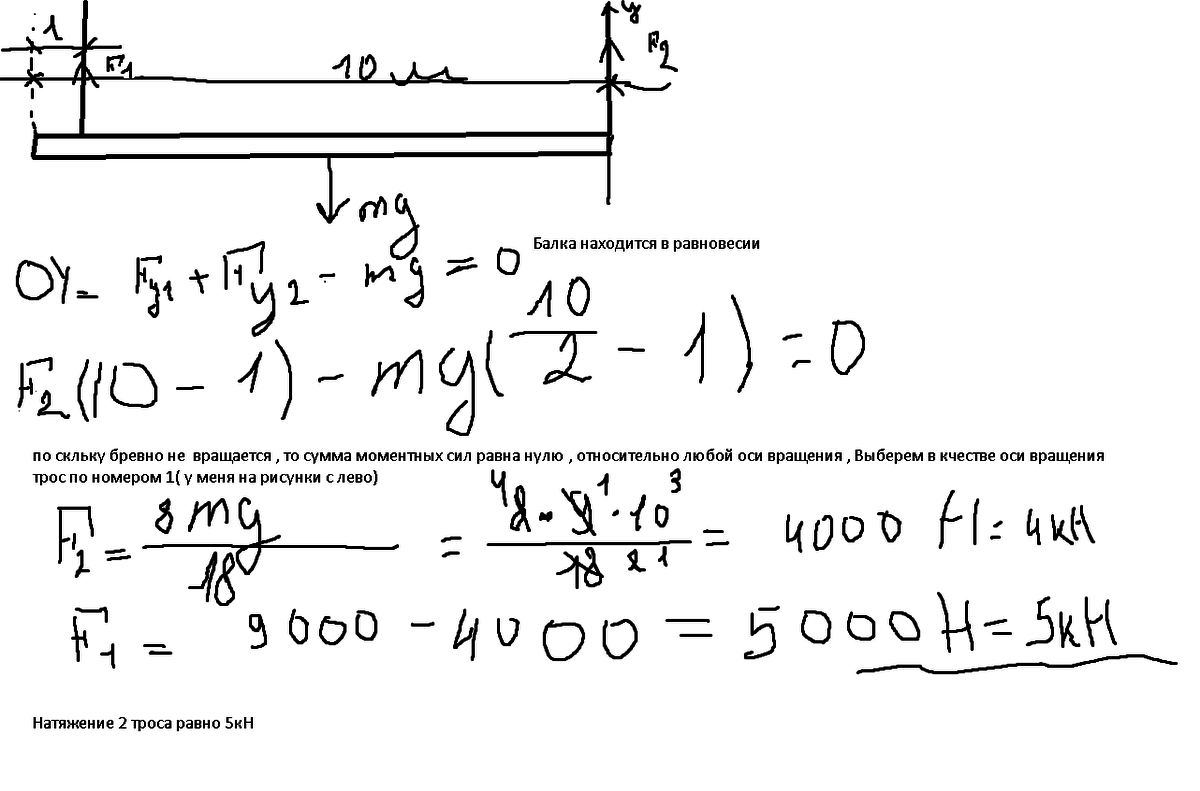 1
F1 10 м F2 y
mg
Балка находится в равновесии
OY= Fy1 + Fy2 - mg = 0
F2(10 - 1) - mg(10/2 - 1) = 0
по скльку бревно не вращается , то сумма моментных сил равна нулю , относительно любой оси вращения , Выберем в кчестве оси вращения
трос по номером 1( у меня на рисунки с лево)
F2 = 8mg/18 = 8 · 9 · 10³/18 = 4000 H = 4кН
F1 = 9000 - 4000 = 5000 H = 5кН
Натяжение 2 троса равно 5кН